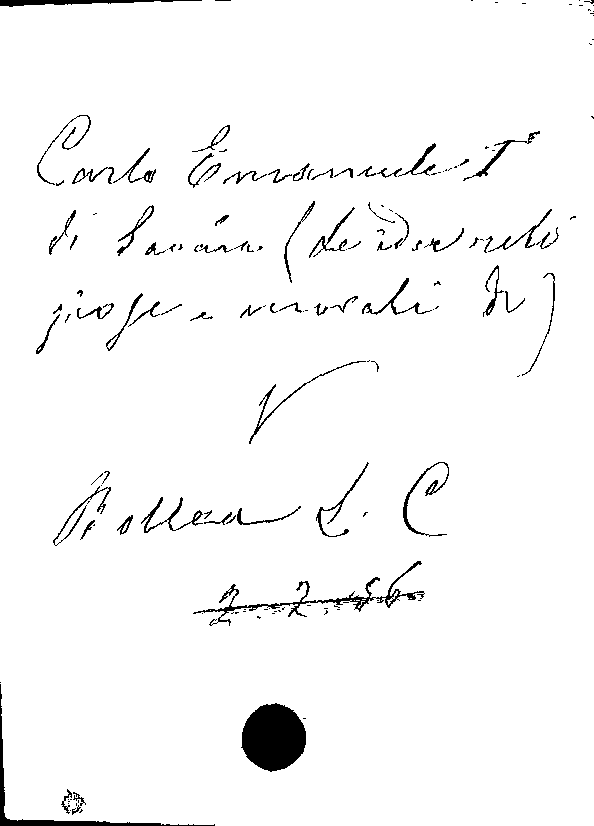 Carlo Emanuele I°
di Savoia (Le idee reli
giose e morali di)
V
Bollea L. C
2. 2. 56